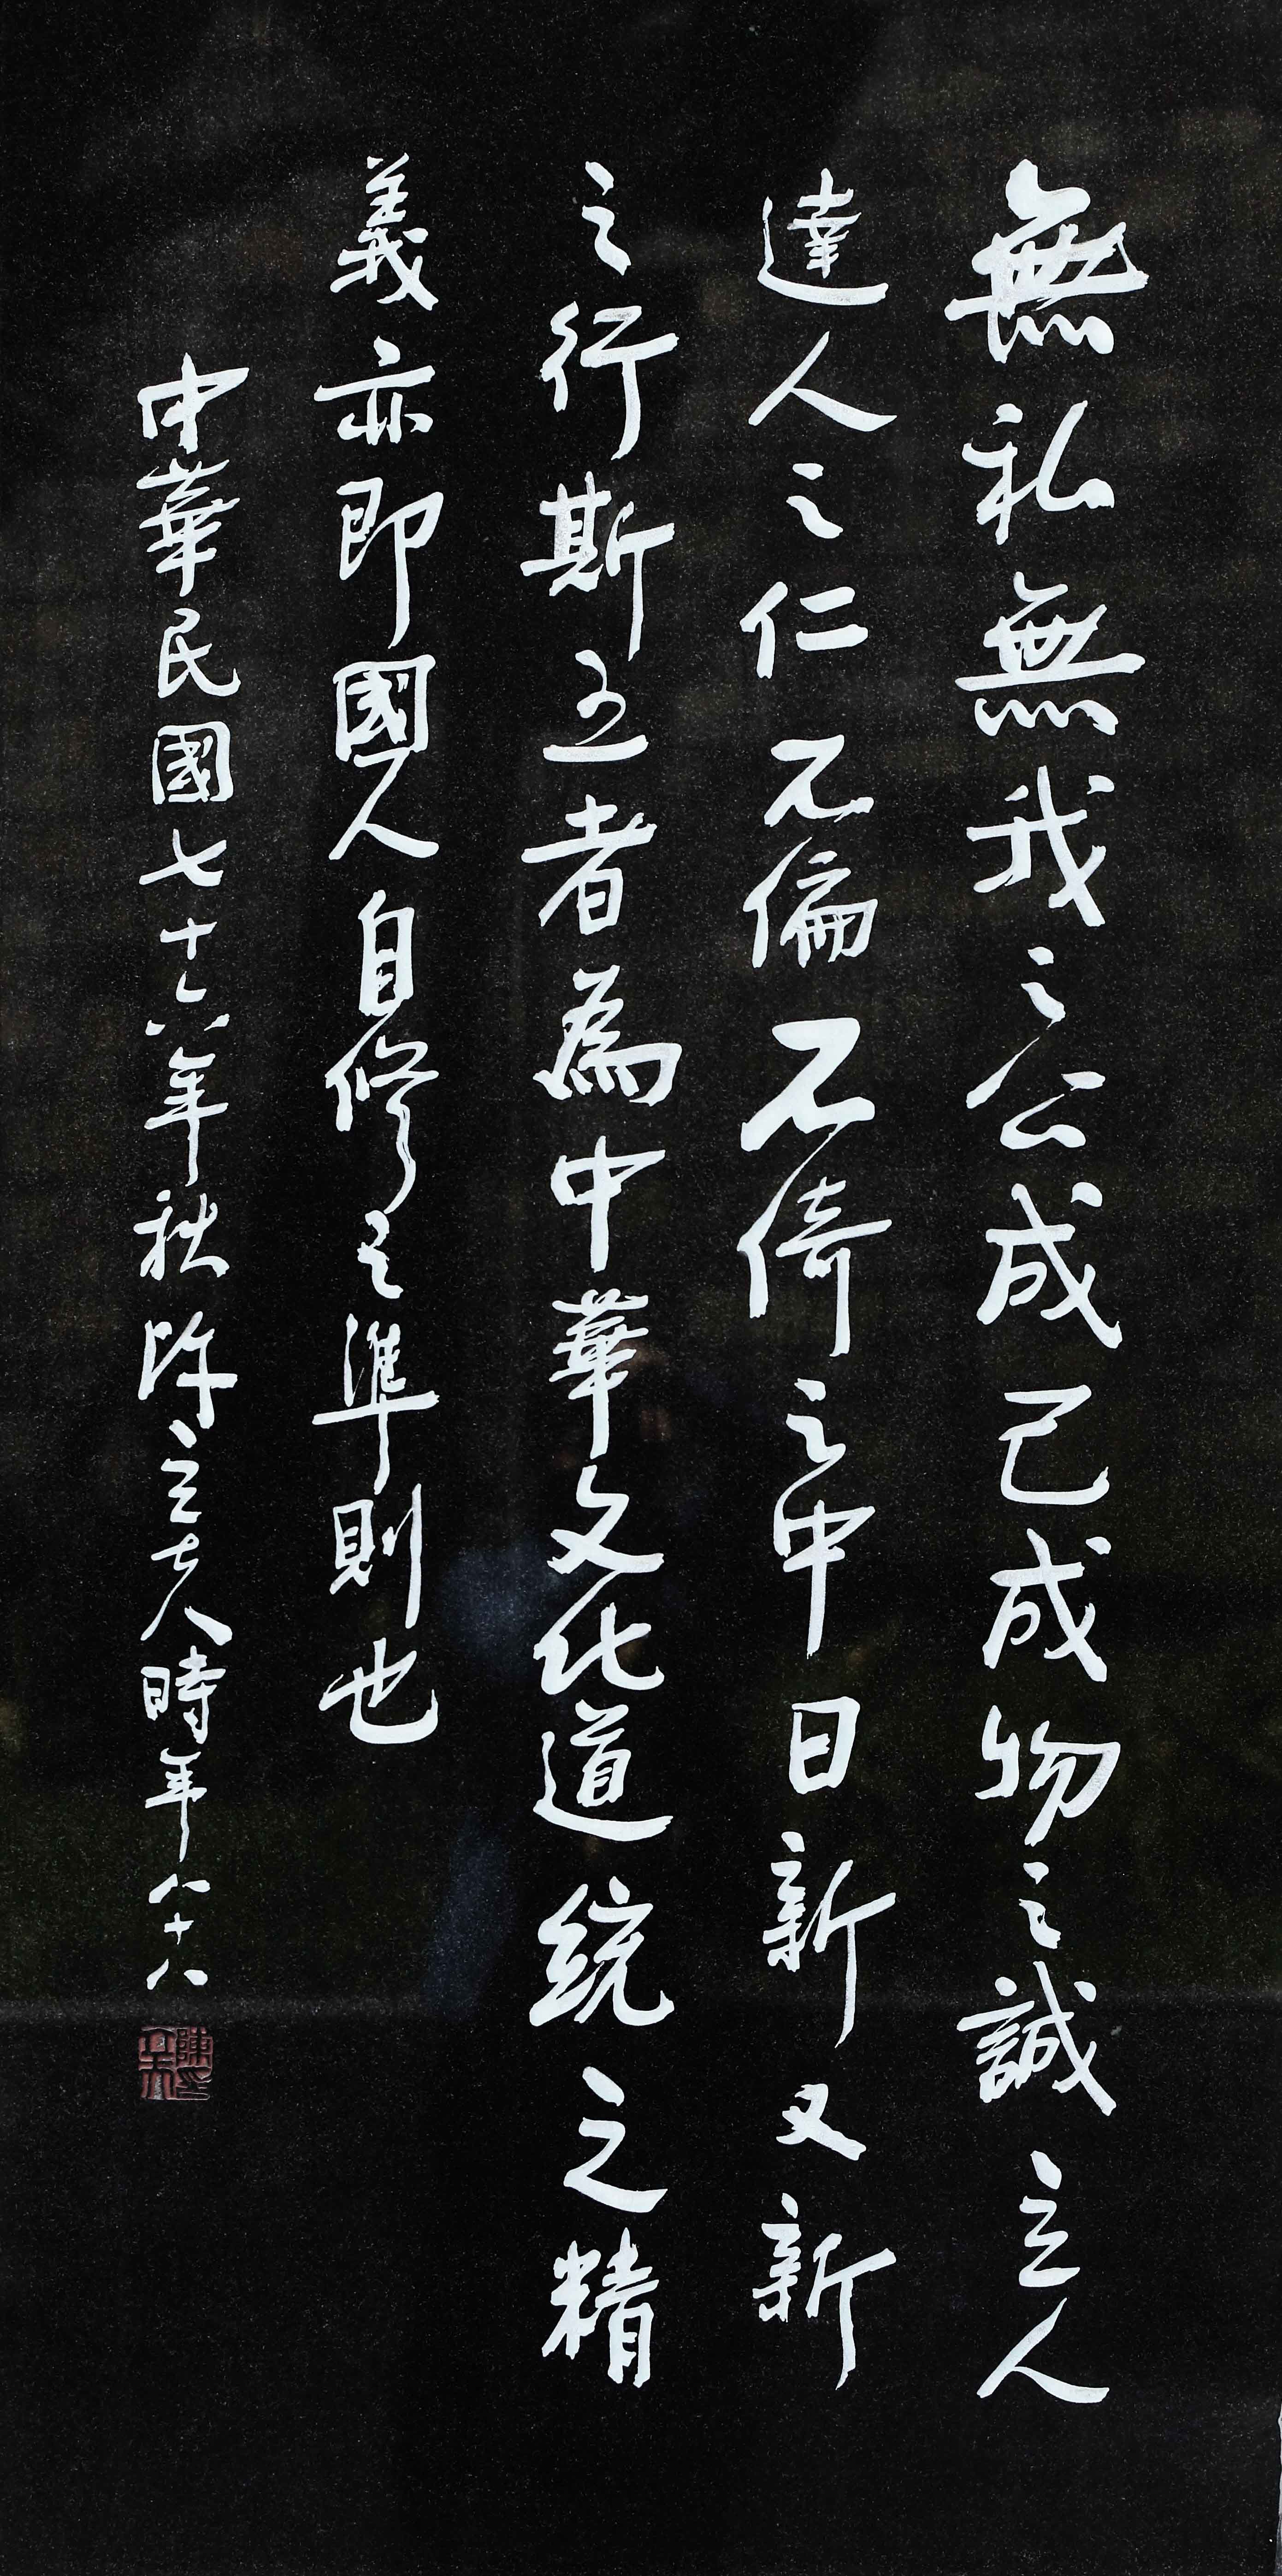 無私無我之公成己成物之誠立人
達人之仁不偏不倚之中日新又新
之行斯五者為中華文化道統之精
義亦即國人自修之準則也
中華民國七十六年秋陳立夫時年八十八
陳立夫印